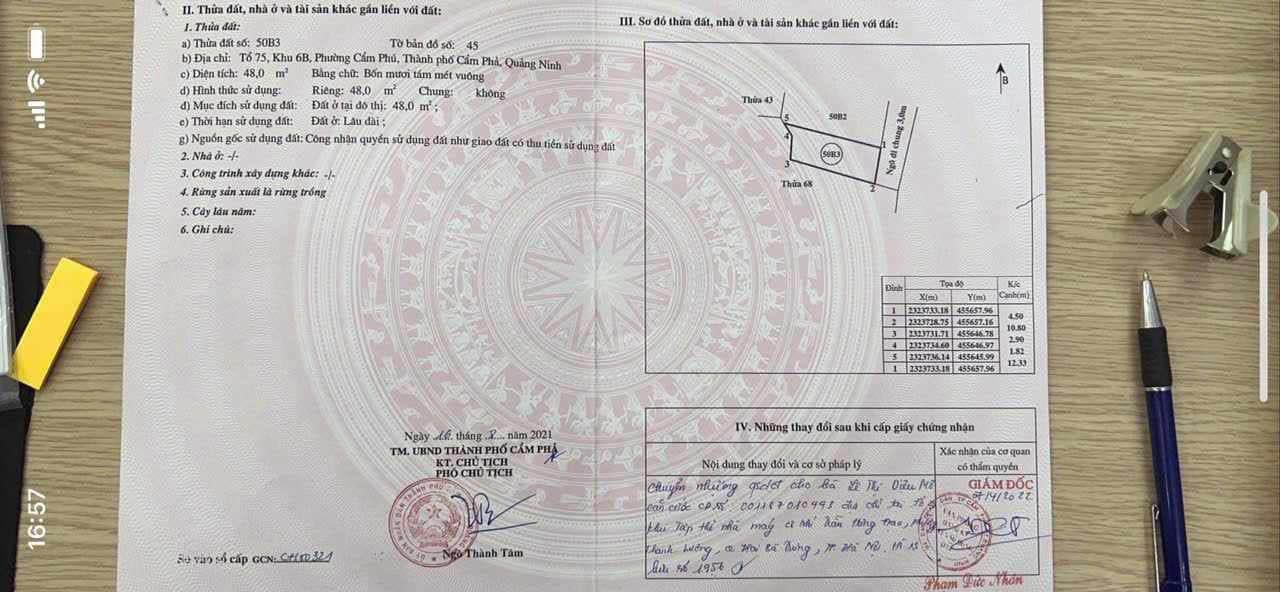 II. Thửa đất, nhà ở và tài sản khác gắn liền với đất:
1. Thửa đất:
a) Thửa đất số: 50B3 Tờ bản đồ số: 45
b) Địa chỉ: Tổ 75, Khu 6B, Phường Cẩm Phú, Thành phố Cẩm Phả, Quảng Ninh
c) Diện tích: 48,0 m² Bằng chữ: Bốn mươi tám mét vuông
d) Hình thức sử dụng: Riêng: 48,0 m² Chung: không
đ) Mục đích sử dụng đất: Đất ở tại đô thị: 48,0 m²;
e) Thời hạn sử dụng đất: Đất ở: Lâu dài;
g) Nguồn gốc sử dụng đất: Công nhận quyền sử dụng đất như giao đất có thu tiền sử dụng đất
2. Nhà ở: -/-
3. Công trình xây dựng khác: -/-
4. Rừng sản xuất là rừng trồng
5. Cây lâu năm:
6. Ghi chú:
Ngày tháng năm 2021
TM. UBND THÀNH PHỐ CẨM PHẢ
KT. CHỦ TỊCH
PHÓ CHỦ TỊCH
Ngô Thành Tâm
Số vào sổ cấp GCN:
III. Sơ đồ thửa đất, nhà ở và tài sản khác gắn liền với đất:
B
Thửa 43
5
50B2
4
1
50B3
3
Thửa 68
2
Ngõ đi chung 3,0m
Đỉnh Tọa độ K/c
X(m) Y(m) Cạnh(m)
1 2323733.18 455657.96
4.50
2 2323728.75 455657.16
10.80
3 2323731.71 455646.78
2.90
4 2323734.60 455646.97
1.82
5 2323736.14 455645.99
12.33
1 2323733.18 455657.96
IV. Những thay đổi sau khi cấp giấy chứng nhận
Nội dung thay đổi và cơ sở pháp lý
Xác nhận của cơ quan
có thẩm quyền
Chuyển nhượng cho bà Lê Thị Diệu
căn cước địa chỉ tại
khu Tập thể nhà máy cơ khí Trần Hưng Đạo,
Thanh Lương, Hai Bà Trưng, Hà Nội
số 1956
GIÁM ĐỐC
Phạm Đức Nhân
16:57